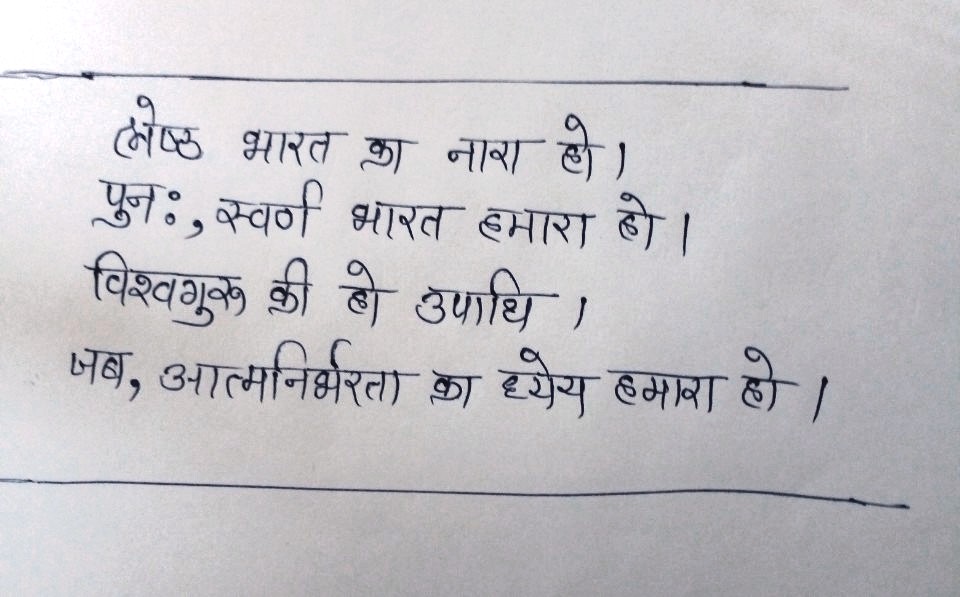 श्रेष्ठ भारत का नारा हो।
पुनः, स्वर्ग भारत हमारा हो।
विश्वगुरू की हो उपाधि।
जब, आत्मनिर्भरता का ध्येय हमारा हो।